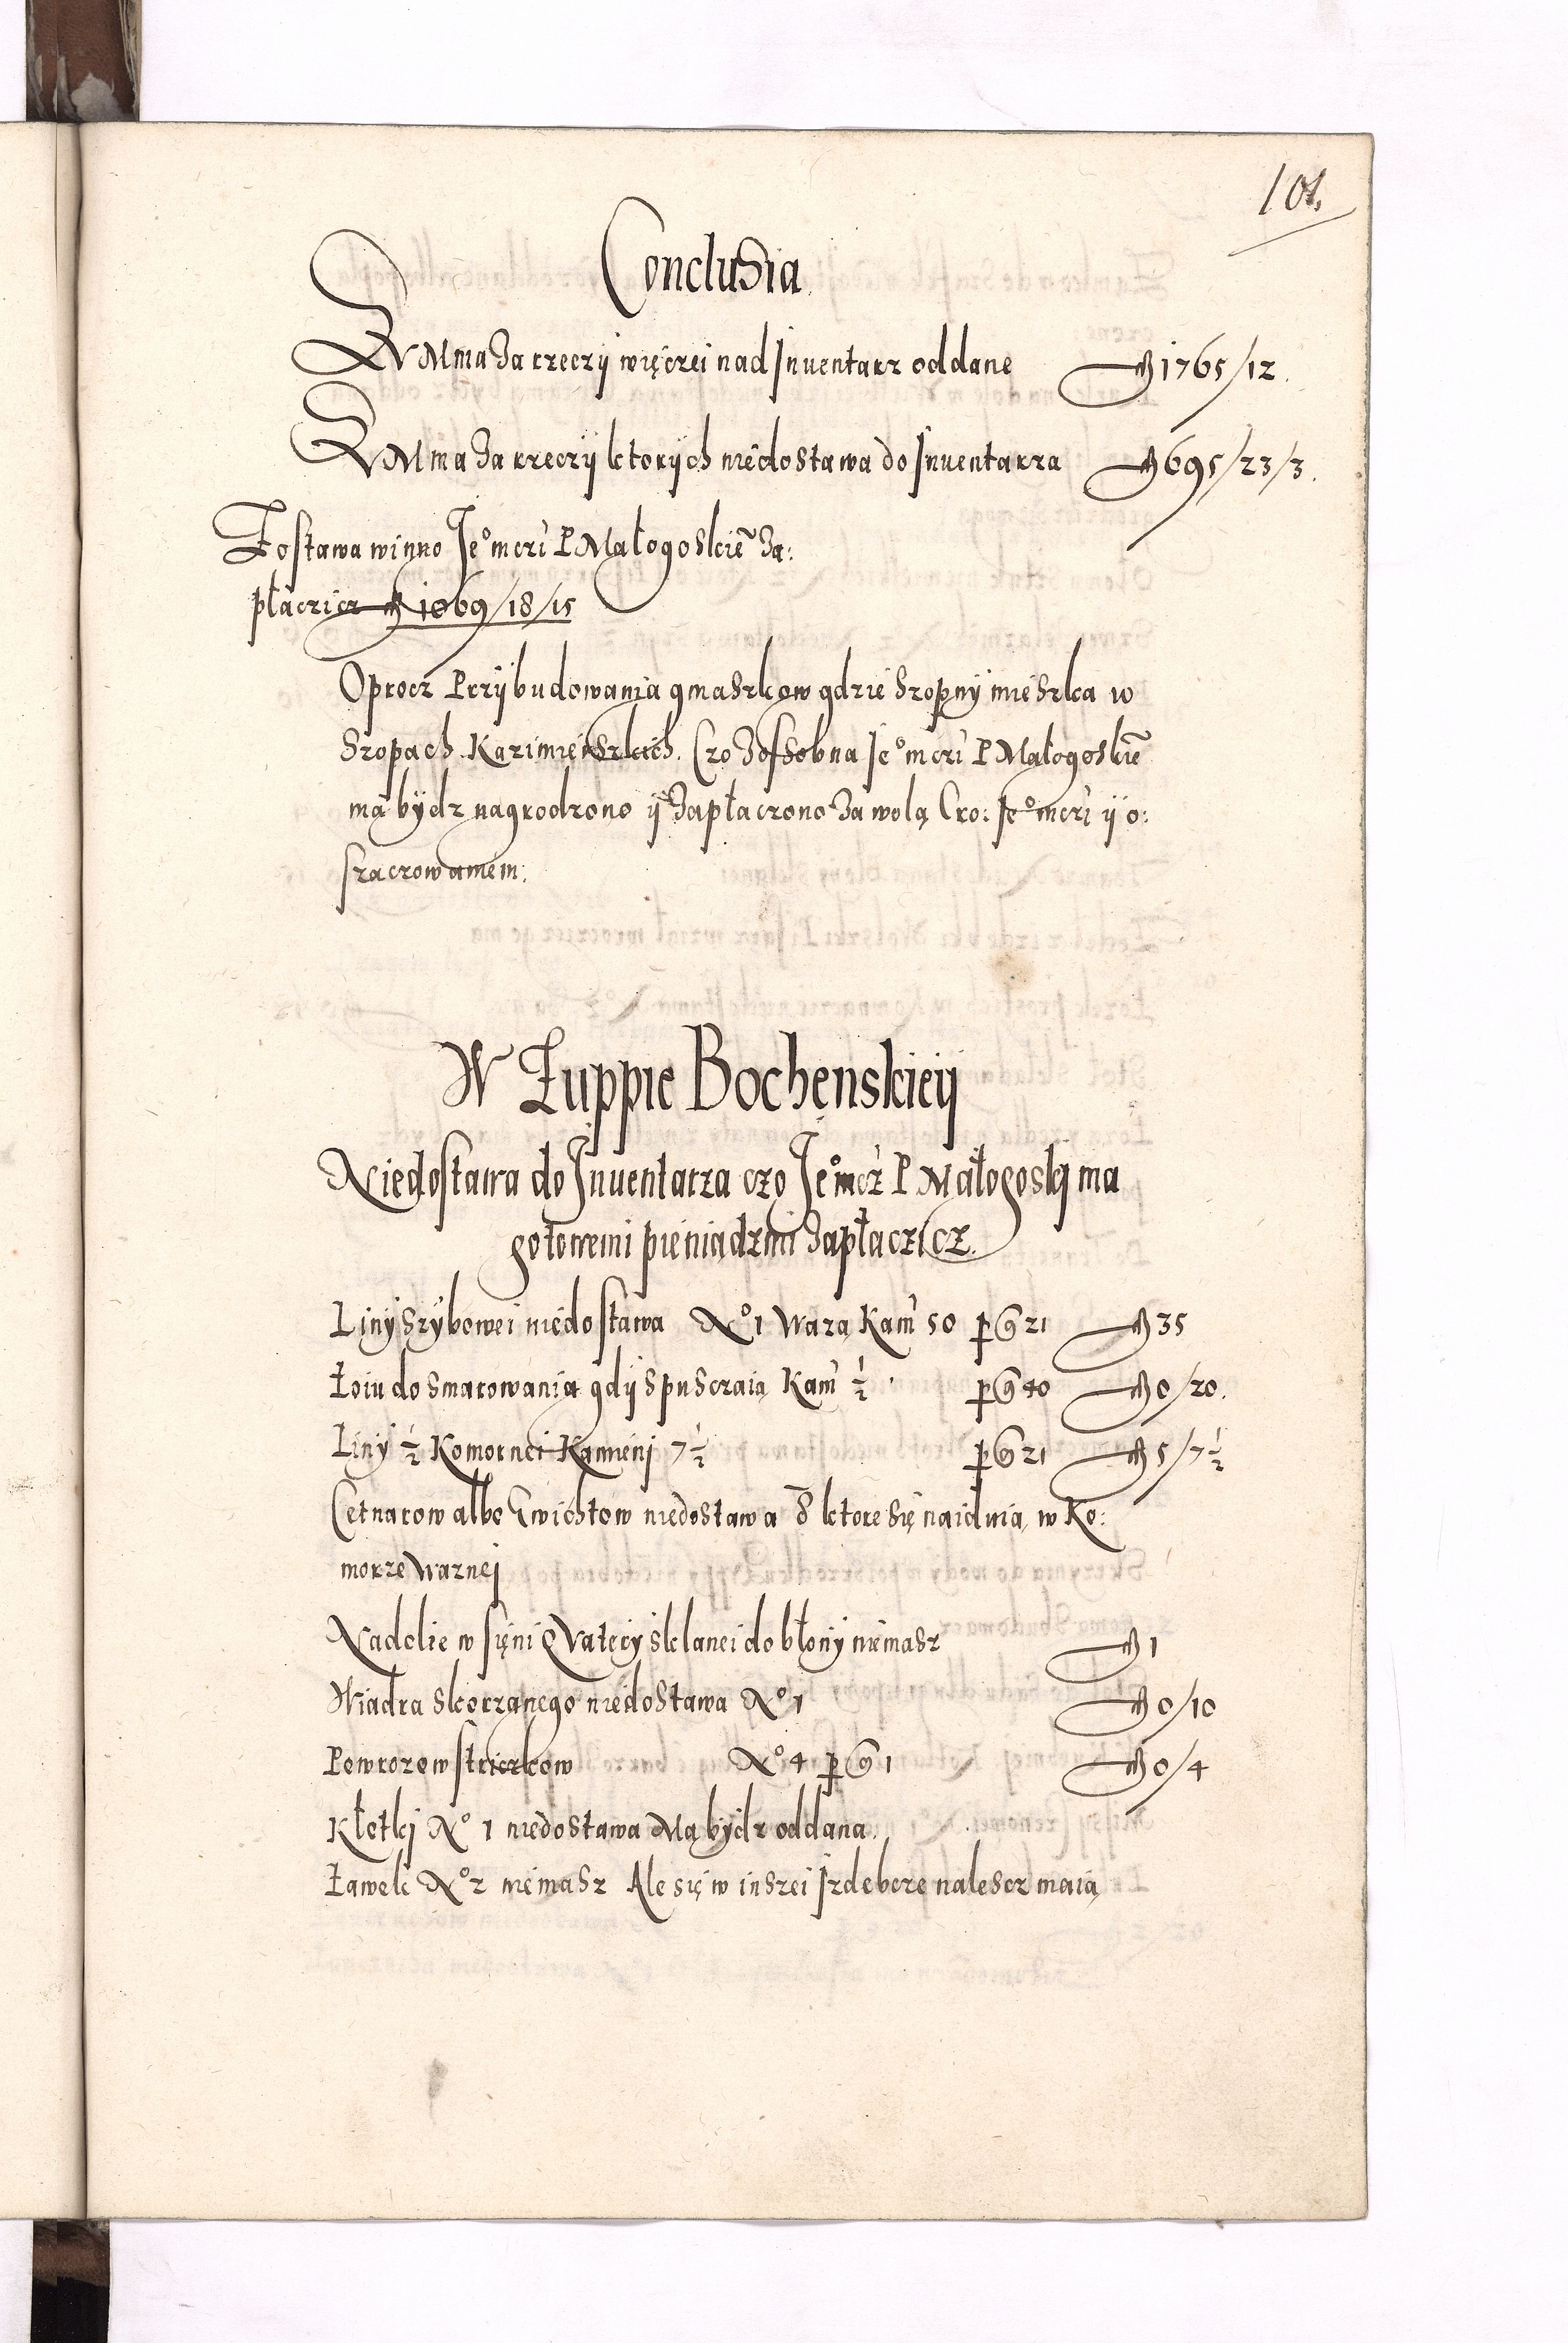 101.
Conclusia
SVMma za rzeczÿ więczei nad Inuentarz oddane ƒ 1765/12.
SVMma za rzeczÿ ktorÿch niedostawa do Inuentarza ƒ 695/23/3.
Zostawa winno Je° mczi P Małogoskiē za:
płaczicz ƒ 1069/18/15
Oprocz Przÿbudowania gmaszkow gdzie Szopny mieszka w
Szopach Kazimięrszkich. Czo zossobna Je° mczi P Małogoskiē
ma bydz nagrodzono ÿ zapłaczono za wolą Cro: Je° mczi ÿ o:
szaczowaniem:
W Żuppie Bochenskieÿ
Niedostawa do Inuentarza czo Je° mcz P Małogoskj ma
gotowemi pieniądzmi zapłaczicz.
Liny Szybowei niedostawa N° 1 Wazą Kam 50 p gr 21 ƒ 35
Łoiu do Smarowania gdÿ spusczaią Kam ½ p gr 40 ƒ 0/20.
Liny ½ Komornei Kamieni 7½ p gr 21 ƒ 5/7½
Cetnarow albo Gwichtow niedostawa 8 ktore się naiduią w Ko:
morze Warznej
Na dolie w sięni QVatery sklanei do błony niemasz ƒ 1
Wiadra skorzanego niedostawa N° 1 ƒ 0/10
Powrozow striczkow N° 4 p gr 1 ƒ 0/4
Kłotkj N° 1 niedostawa Ma bydz oddana.
Ławek N° 2 niemasz Ale się w inszei Izdebcze nalescz maią